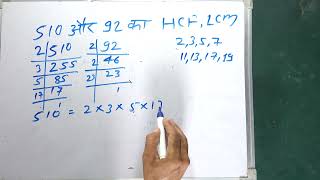 510 और 92 का HCF, LCM
2 | 510
3 | 255
5 | 85
17 | 17
1
2 | 92
2 | 46
23 | 23
1
2, 3, 5, 7
11, 13, 17, 19
510 = 2 × 3 × 5 × 17